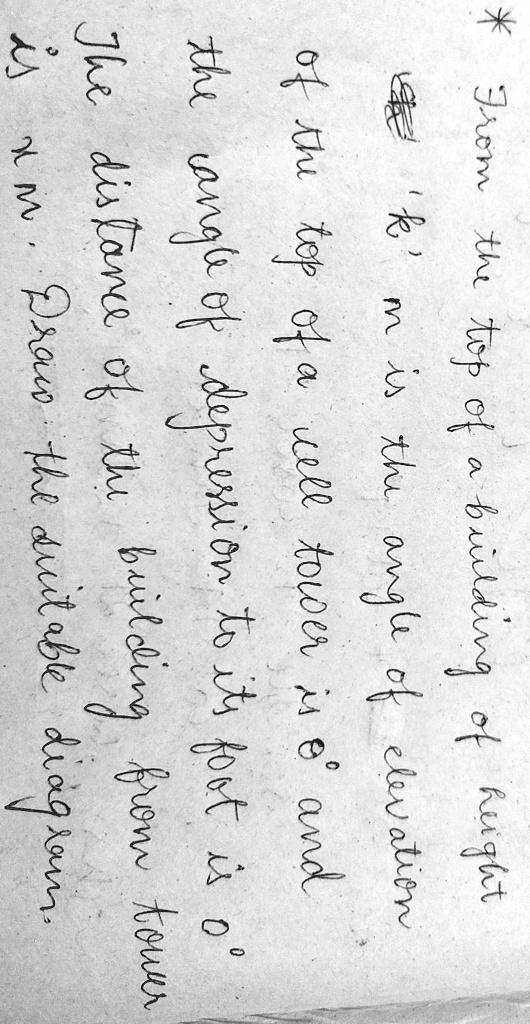 * From the top of a building of height
'k' m is the angle of elevation
of the top of a cell tower is 0° and
the angle of depression to its foot is 0°
The distance of the building from tower
is x m. Draw the suitable diagram.